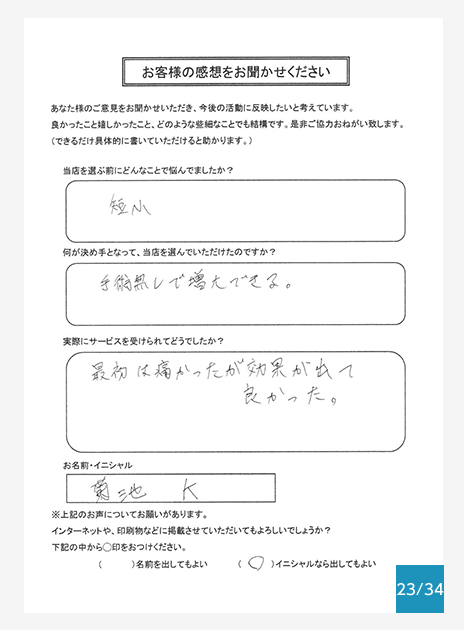 お客様の感想をお聞かせください
あなた様のご意見をお聞かせいただき、今後の活動に反映したいと考えています。
良かったこと嬉しかったこと、どのような些細なことでも結構です。是非ご協力おねがい致します。
（できるだけ具体的に書いていただけると助かります。）
当店を選ぶ前にどんなことで悩んでましたか？
短小
何が決め手となって、当店を選んでいただけたのですか？
手術無しで増大できる。
実際にサービスを受けられてどうでしたか？
最初は痛かったが効果が出て
良かった。
お名前・イニシャル
菊池 K
※上記のお声についてお願いがあります。
インターネットや、印刷物などに掲載させていただいてもよろしいでしょうか？
下記の中から○印をおつけください。
（ ）名前を出してもよい （ ○ ）イニシャルなら出してもよい
23/34